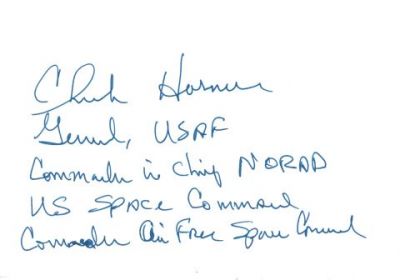 Chuck Horner
General, USAF
Commander in Chief NORAD
US Space Command
Commander Air Force Space Command